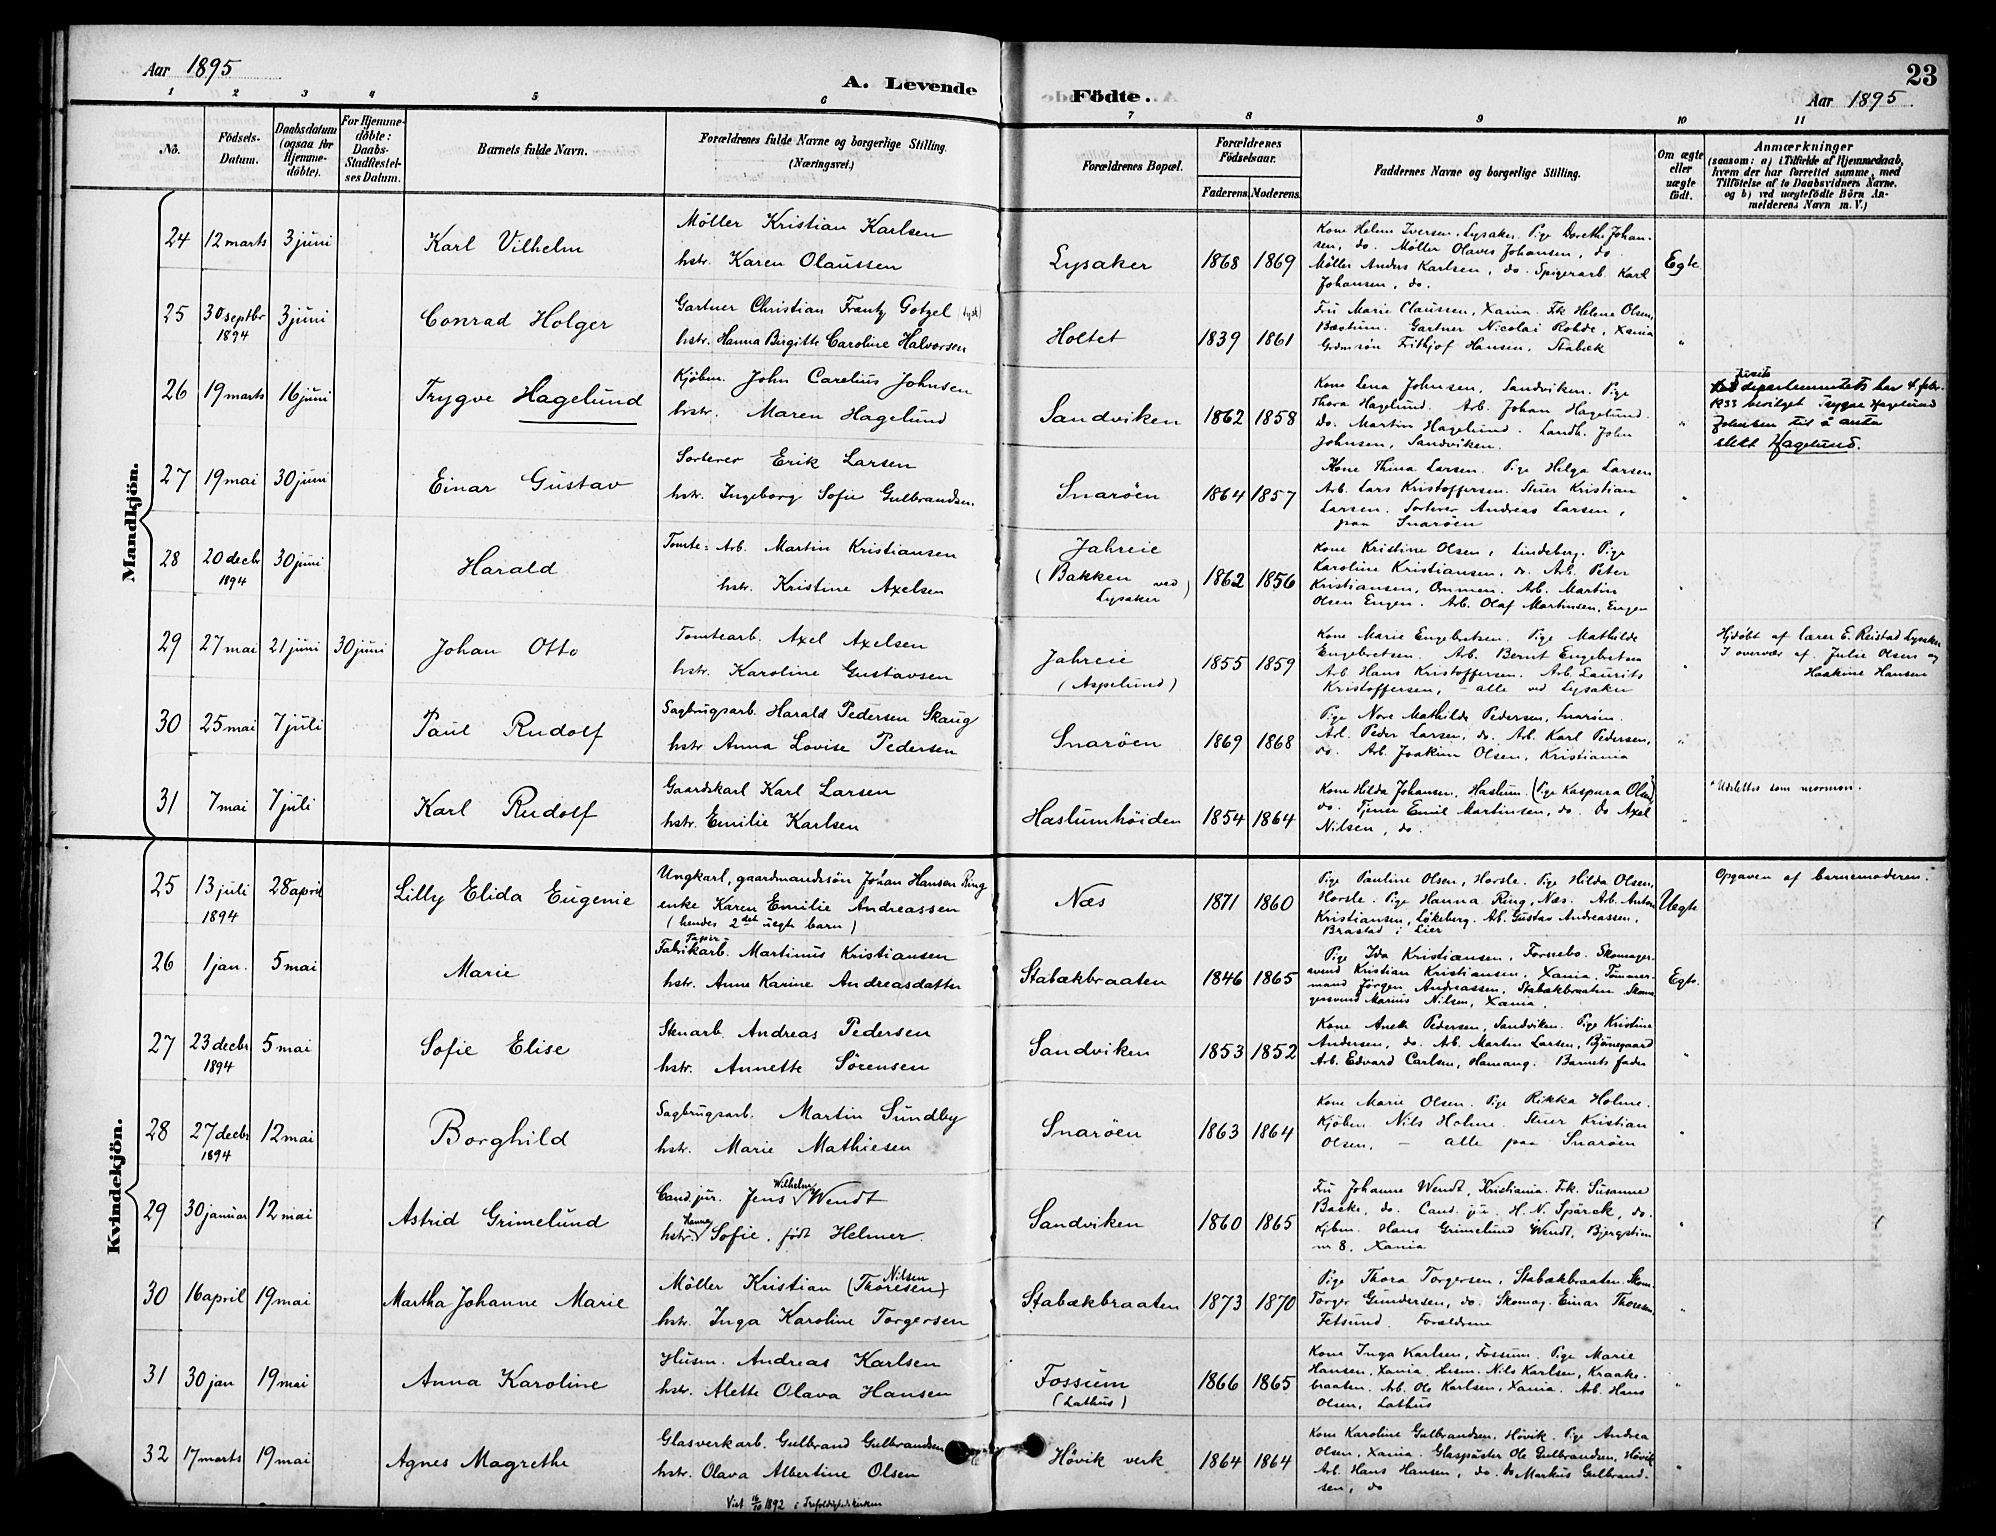 Aar 1895
A. Levende Födte.
23
Aar 1895
1 2 3 4 5 6 7 8 9 10 11
No.
Födsels-Datum.
Daabsdatum (ogsaa for Hjemme-döbte).
For Hjemme-döbte: Daabs-Stadfæstel-ses Datum.
Barnets fulde Navn.
Forældrenes fulde Navne og borgerlige Stilling. (Næringsvei.)
Forældrenes Bopæl.
Forældrenes Födselsaar.
Faderens. Moderens.
Faddernes Navne og borgerlige Stilling.
Om ægte eller uægte födt.
Anmærkninger
(saasom: a) i Tilfælde af Hjemmedaab, hvem der har forrettet samme, med Tilföielse af to Daabsvidners Navne. og b) ved uægtefödte Börn An-melderens Navn m. V.)
Mandkjön.
24 12 marts 3 juni Karl Vilhelm
Møller Kristian Karlsen
hstr. Karen Olaussen
Lysaker 1868 1869
Kone Helene Iversen, Lysaker. Pige Dorethe Johan-
sen, do. Møller Olaves Johansen, do.
Møller Anders Karlsen, do. Spigerarb. Karl
Johansen, do.
Egte
25 30 septbr 1894 3 juni Conrad Holger
Gartner Christian Frantz Gotzel (tysk)
hstr. Hanna Birgitte Caroline Halvorsen
Holtet 1839 1861
Fru Marie Claussen, Xania. Frk Helene Olsen,
Bærum. Gartner Nicolai Rohde, Xania
Grdmsøn Frithjof Hansen, Stabæk
"
26 19 marts 16 juni Trygve Hagelund
Kjøbm. John Carelius Johnsen
hstr. Maren Hagelund
Sandviken 1862 1858
Kone Lena Johnsen, Sandviken. Pige
Thora Hagelund. Arb. Johan Hagelund.
Do. Martin Hagelund. Landh. John
Johnsen, Sandviken.
"
Justis
departementets har 4. febr.
1933 bevilget Trygve Hagelund
Johnsen til å anta
slekt Hagelund.
27 19 mai 30 juni Einar Gustav
Sorterer Erik Larsen
hstr. Ingeborg Sofie Gulbrandsen.
Snarøen 1864 1857
Kone Thina Larsen. Pige Helga Larsen
Arb. Lars Kristoffersen. Stuer Kristian
Larsen. Sorterer Andreas Larsen,
paa Snarøen
"
28 20 decbr 1894 30 juni Harald
Tomte-Arb. Martin Kristiansen
hstr. Kristine Axelsen
Jahreie
(Bakken ved
Lysaker)
1862 1856
Kone Kristine Olsen, Lindeberg. Pige
Karoline Kristiansen, do. Arb. Peter
Kristiansen, Ommen. Arb. Martin
Olsen Engen. Arb. Olaf Martinsen, Engen
"
29 27 mai 21 juni 30 juni Johan Otto
Tomtearb. Axel Axelsen
hstr. Karoline Gustavsen
Jahreie
(Aspelund)
1855 1859
Kone Marie Engebretsen. Pige Mathilde
Engebretsen. Arb. Bernt Engebretsen
Arb. Hans Kristoffersen. Arb. Laurits
Kristoffersen, – alle ved Lysaker
"
Hjdøbt af lærer E. Reistad Lysaker
I overvær af. Julie Olsen og
Haakine Hansen
30 25 mai 7 juli Paul Rudolf
Sagbrugsarb. Harald Pedersen Skaug
hstr Anna Lovise Pedersen
Snarøen 1869 1868
Pige Nora Mathilde Pedersen, Snarøen.
Arb. Peder Larsen, do. Arb. Karl Pedersen,
do. Arb. Joakim Olsen, Kristiania
"
31 7 mai 7 juli Karl Rudolf
Gaardskarl Karl Larsen
hstr. Emilie Karlsen
Haslumhöiden 1854 1864
Kone Hilda Johansen, Haslum. (Pige Kaspara Olsen)
do. Tjener Emil Martinsen, do. Do Axel
Nilsen, do.
"
Udslettes som mormon.
Kvindekjön.
25 13 juli 1894 28 april Lilly Elida Eugenie
Ungkarl, gaardmandssøn Johan Hansen Ring
enke Karen Emilie Andreassen
(hendes 2det uegte barn)
Næs 1871 1860
Pige Pauline Olsen, Horsle. Pige Hilda Olsen,
Horsle. Pige Hanna Ring, Næs. Arb. Anton
Kristiansen, Løkeberg. Arb. Gustav Andreassen,
Brastad i Lier
Uegte
Opgaven af barnemoderen.
26 1 jan. 5 mai Marie
Papir
Fabrikarb. Martinus Kristiansen
hstr. Anne Karine Andreasdatter
Stabækbraaten 1846 1865
Pige Ida Kristiansen, Fornebo. Skomager-
svend Kristian Kristiansen. Xania. Tømmer-
mand Jørgen Andreassen, Stabækbraaten. Skoma-
gersvend Marius Nilsen, Xania.
Egte.
27 23 decbr 1894 5 mai Sofie Elise
Stenarb. Andreas Pedersen
hstr. Annette Sörensen
Sandviken 1853 1852
Kone Anette Pedersen, Sandviken. Pige Kristine
Andersen, do. Arb. Martin Larsen, Bjørnegaard
Arb. Edvard Carlsen, Hamang. Barnets fader
"
28 27 decbr 1894 12 mai Borghild
Sagbrugsarb. Martin Sundby
hstr. Marie Mathiesen
Snarøen 1863 1864
Kone Marie Olsen. Pige Rikka Holme.
Kjøbm. Nils Holme. Stuer Kristian
Olsen, – alle paa Snarøen
"
29 30 januar 12 mai Astrid Grimelund
Cand. jur. Jens Wilhelm Wendt
hstr. Hanna Sofie, født Helmer.
Sandviken 1860 1865
Fru Johanne Wendt, Kristiania. Frk. Susanne
Backe, do. Cand. jur. H. N. Spärck, do.
Kjbm. Hans Grimelund Wendt, Bjergstien
nr 8. Xania
"
30 16 april 19 mai Martha Johanne Marie
Møller Kristian (Thoresen) Nilsen
hstr. Inga Karoline Torgersen
Stabækbraaten 1873 1870
Pige Thora Torgersen, Stabækbraaten. Skom.
Torger Gundersen, do. Skomag. Einar Thoresen
Fetsund. Forældrene
"
31 30 jan 19 mai Anna Karoline
Husm. Andreas Karlsen
hstr. Alette Olava Hansen
Fossum
(Lathus)
1866 1865
Kone Inga Karlsen, Fossum. Pige Marie
Hansen, Xania. Husm. Nils Karlsen, Kraake-
braaten. Arb. Ole Karlsen, Xania. Arb. Hans
Olsen, Lathus
"
32 17 marts 19 mai Agnes Magrethe
Glasverkarb. Gulbrand Gulbrandsen
hstr. Olava Albertine Olsen
Viet 16/10 1892 i Trefoldighedskirken
Høvik verk 1864 1864
Kone Karoline Gulbrandsen, Høvik. Pige Andrea
Olsen, Xania. Glaspuster Ole Gulbrandsen, Høvik
Arb. Hans Hansen, do. Do Markus Gulbrand-
sen, do
"